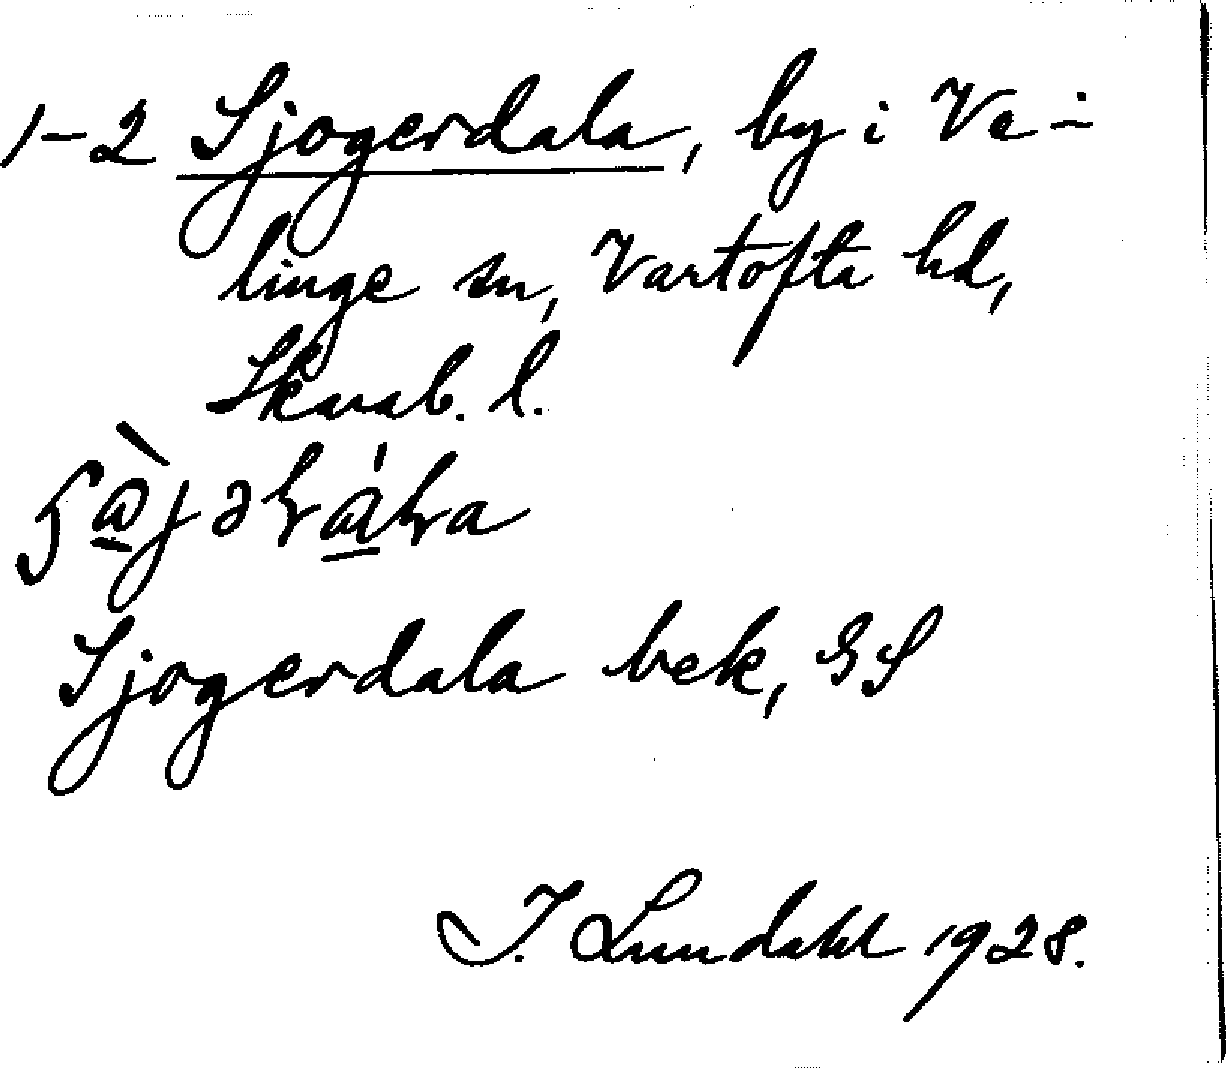 1-2 Sjogerdala, by i Va-
linge sn, Vartofta hd,
Skarab. l.
Sjogerdala bek, GS
I. Lundahl 1928.